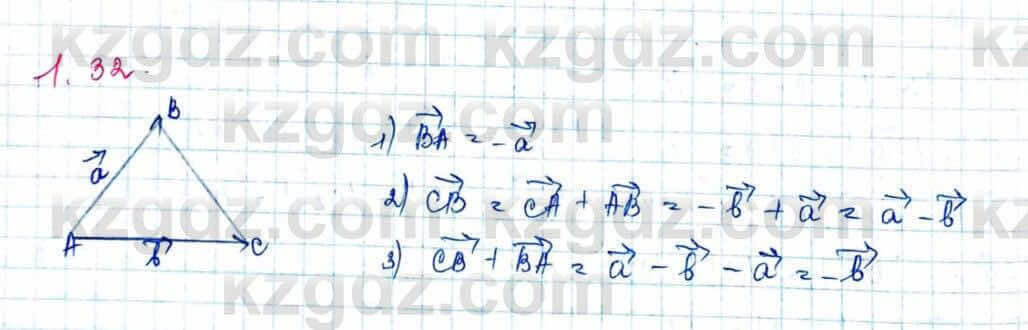 kzgdz.com kzgdz.com kz
1.32.
B
kzgdz.com kzgdz.com
1) BA⃗ = -a⃗
a⃗
2) CB⃗ = CA⃗ + AB⃗ = -b⃗ + a⃗ = a⃗ - b⃗
kzgdz.com kzgdz.com kz
A b⃗ C
3) CB⃗ + BA⃗ = a⃗ - b⃗ - a⃗ = -b⃗
kzgdz.com kzgdz.com